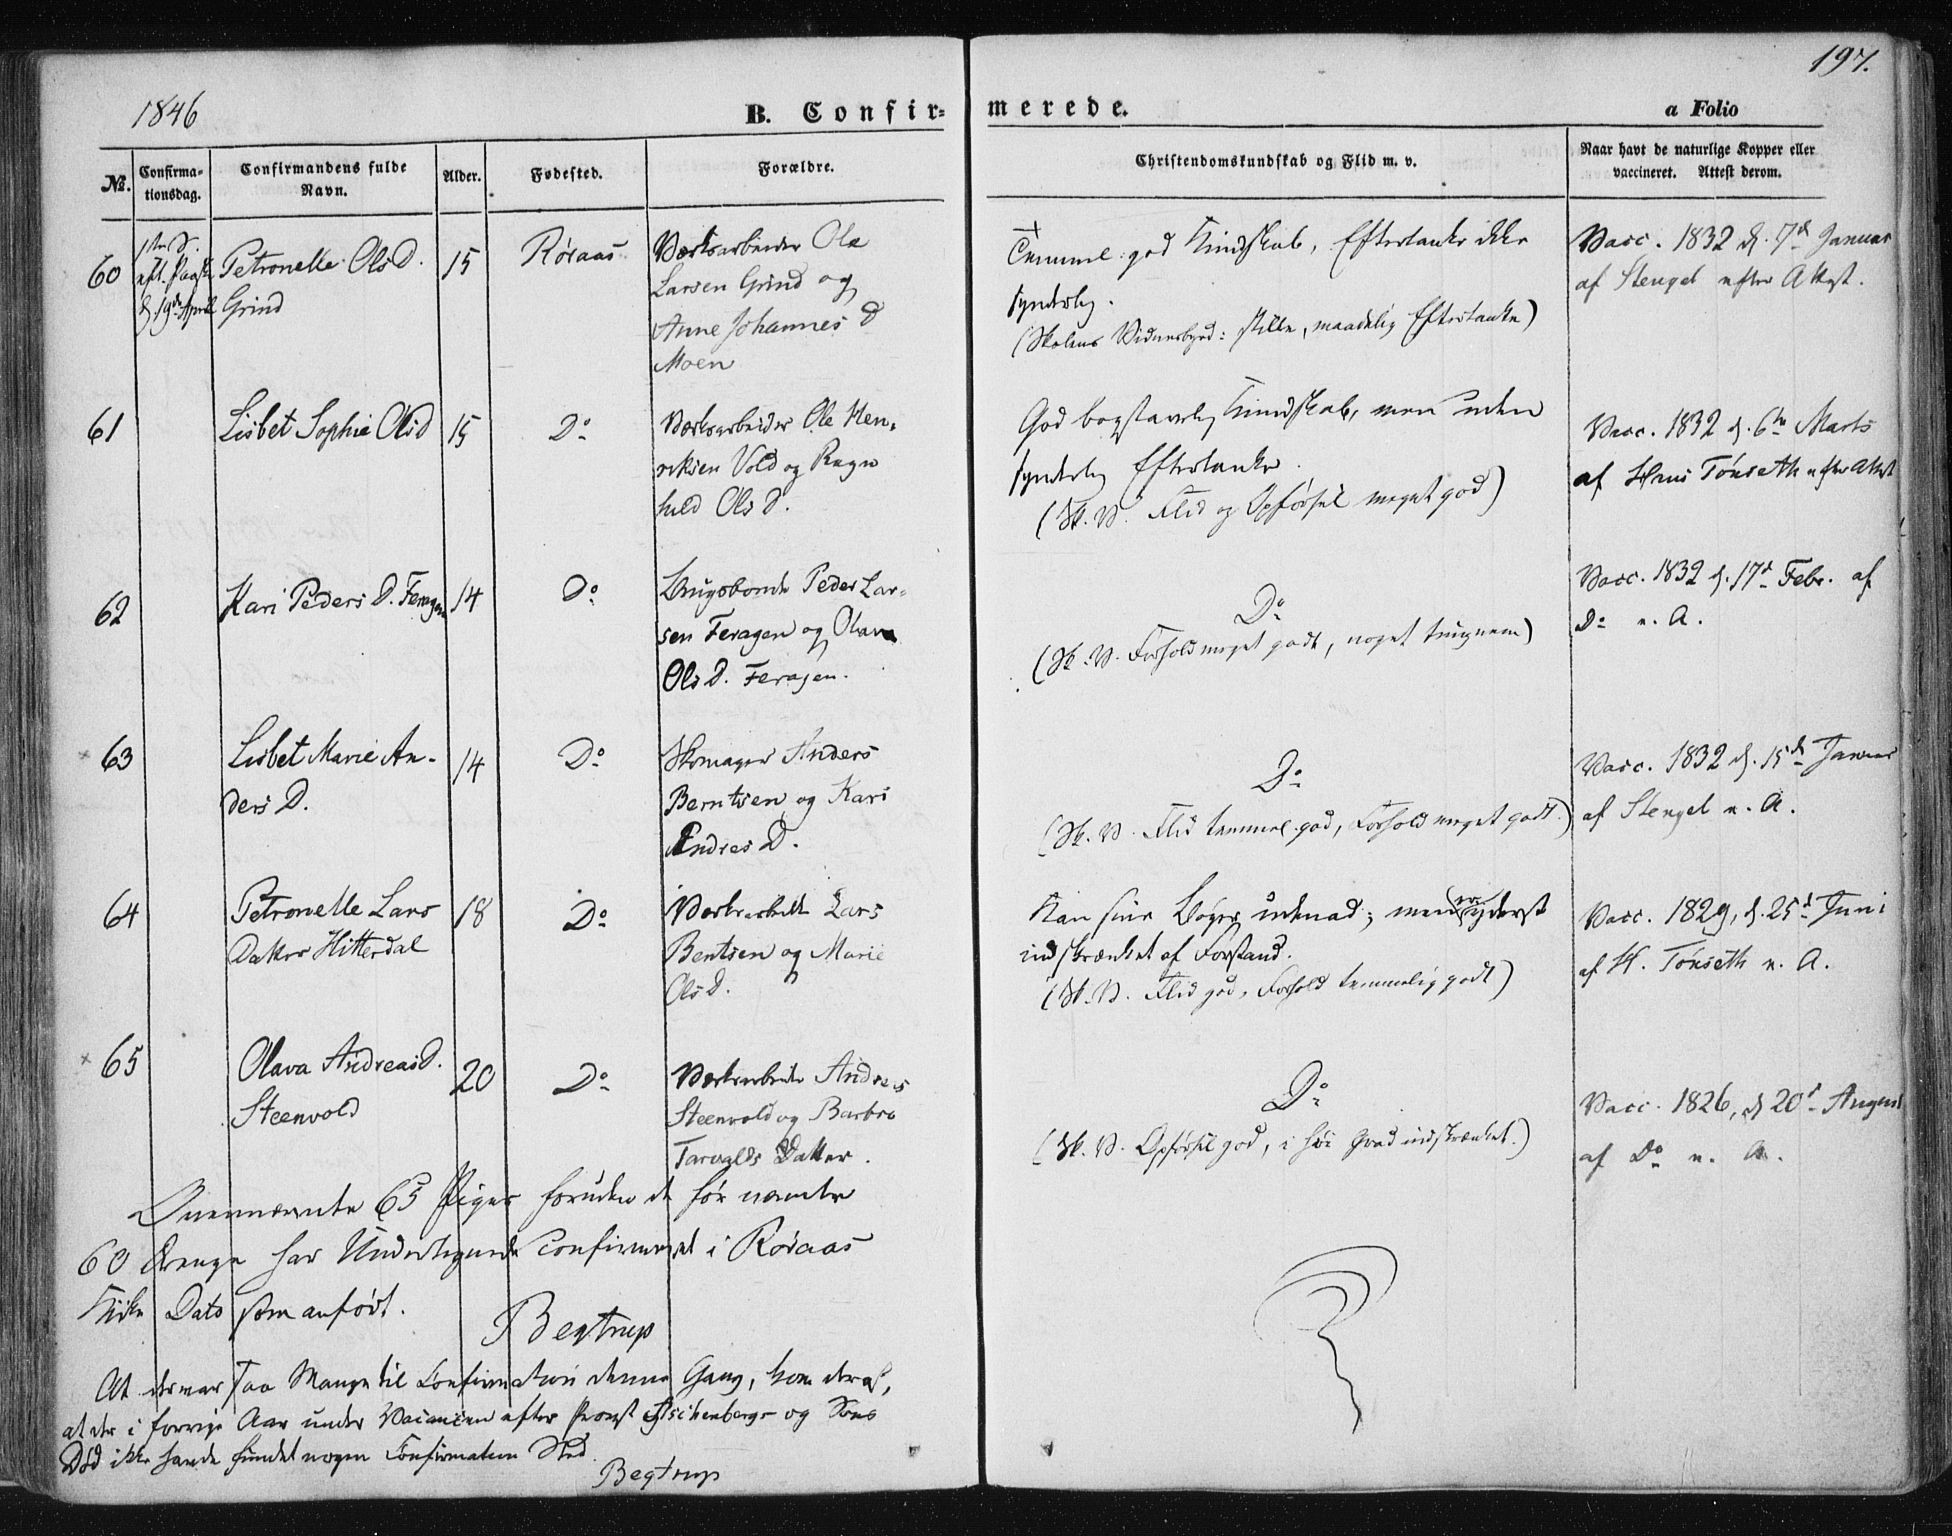 197.
1846
B. Confir-
merede.
a Folio
No.
Confirma-
tionsdag.
Confirmandens fulde
Navn.
Alder.
Fødested.
Forældre.
Christendomskundskab og Flid m. v.
Naar havt de naturlige Kopper eller
vaccineret. Attest derom.
60
1ste S.
eft. Paaske
d. 19de April
Petronelle Ols D.
Grind
15
Röraas
Værksarbeider Ole
Larsen Grind og
Anne Johannes D
Moen
Temmel. god Kundskab, Eftertanke ikke
synderlig.
(Skolens Vidnesbyrd: stille, maadelig Eftertanke)
Vacc. 1832 d. 7d Januar
af Stengel efter Attest.
61
Lisbet Sophie Ols D
15
Do
Værksarbeider Ole Hen-
riksen Vold og Ragn
hild Ols D.
God bogstavelig Kundskab, men uden
synderlig Eftertanke.
(Sk. V. Flid og Opførsel meget god)
Vacc. 1832 d. 6te Marts
af Hans Tönseth efter Attest
62
Kari Peders D. Feragen
14
Do
Brugsbonde Peder Lar-
sen Feragen og Olava
Ols D. Feragen.
Do
(Sk. V. Forhold meget godt, noget tungnem)
Vacc. 1832 d. 17d Febr. af
Do e. A.
63
Lisbet Marie An-
ders D.
14
Do
Skomager Anders
Berntsen og Kari
Andres D.
Do
(Sk. V. Flid temmel. god, Forhold meget godt.)
Vacc. 1832 d. 15d Januar
af Stengel e. A.
64
Petronelle Lars
Datter Hitterdal
18
Do
Værksarbeid. Lars
Bentsen og Marie
Ols D.
Kan sine Bøger udenad; men er yderst
indskrænket af Forstand.
(Sk. V. Flid god, Forhold temmelig godt)
Vacc. 1829, d. 25d Juni
af H. Tönseth e. A.
65
Olava Andreas D.
Steenvold
20
Do
Værksarbeide Andreas
Steenvold og Barbro
Tarvalds Datter.
Do
(Sk. V. Opførsel god, i høi Grad indskrænket.)
Vacc. 1826, d 20d August
af Do e. A.
Ovennævnte 65 Piger foruden de før nævnte
60 Drenge har Undertegnede confirmeret i Röraas
Kirke Dato som anført.
Begtrup
At der var saa Mange til Confirmation denne Gang, kom deraf,
at der i forrige Aar under Vacancen efter Provst Aschenbergs og Søns
Død ikke havde fundet nogen Confirmation Sted.
Begtrup